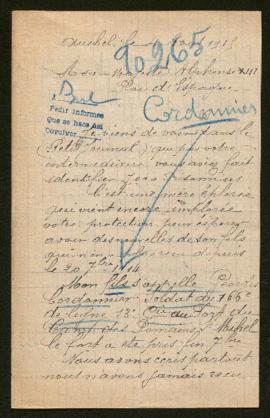 Auchel le
90265
Alphonse XIII
Roi d'Espagne
Berl
Pedir informes
que se hace así
Devolver
Cordonnier
Je viens de voir dans le
Petit Journal que par votre
intermédiaire vous avez fait
identifier
C'est une mère éplorée
qui vient encore implorer
votre protection pour
avoir des nouvelles de son fils
qui n'en depuis
le 20 7bre 1914
Mon fils s'appelle Georges
Cordonnier Soldat du 166e
de ligne 13e Cie du Fort du
Camp des Romains St Mihiel
le fort a été pris fin 7bre
Nous avons écris partout
nous n'avons jamais rien